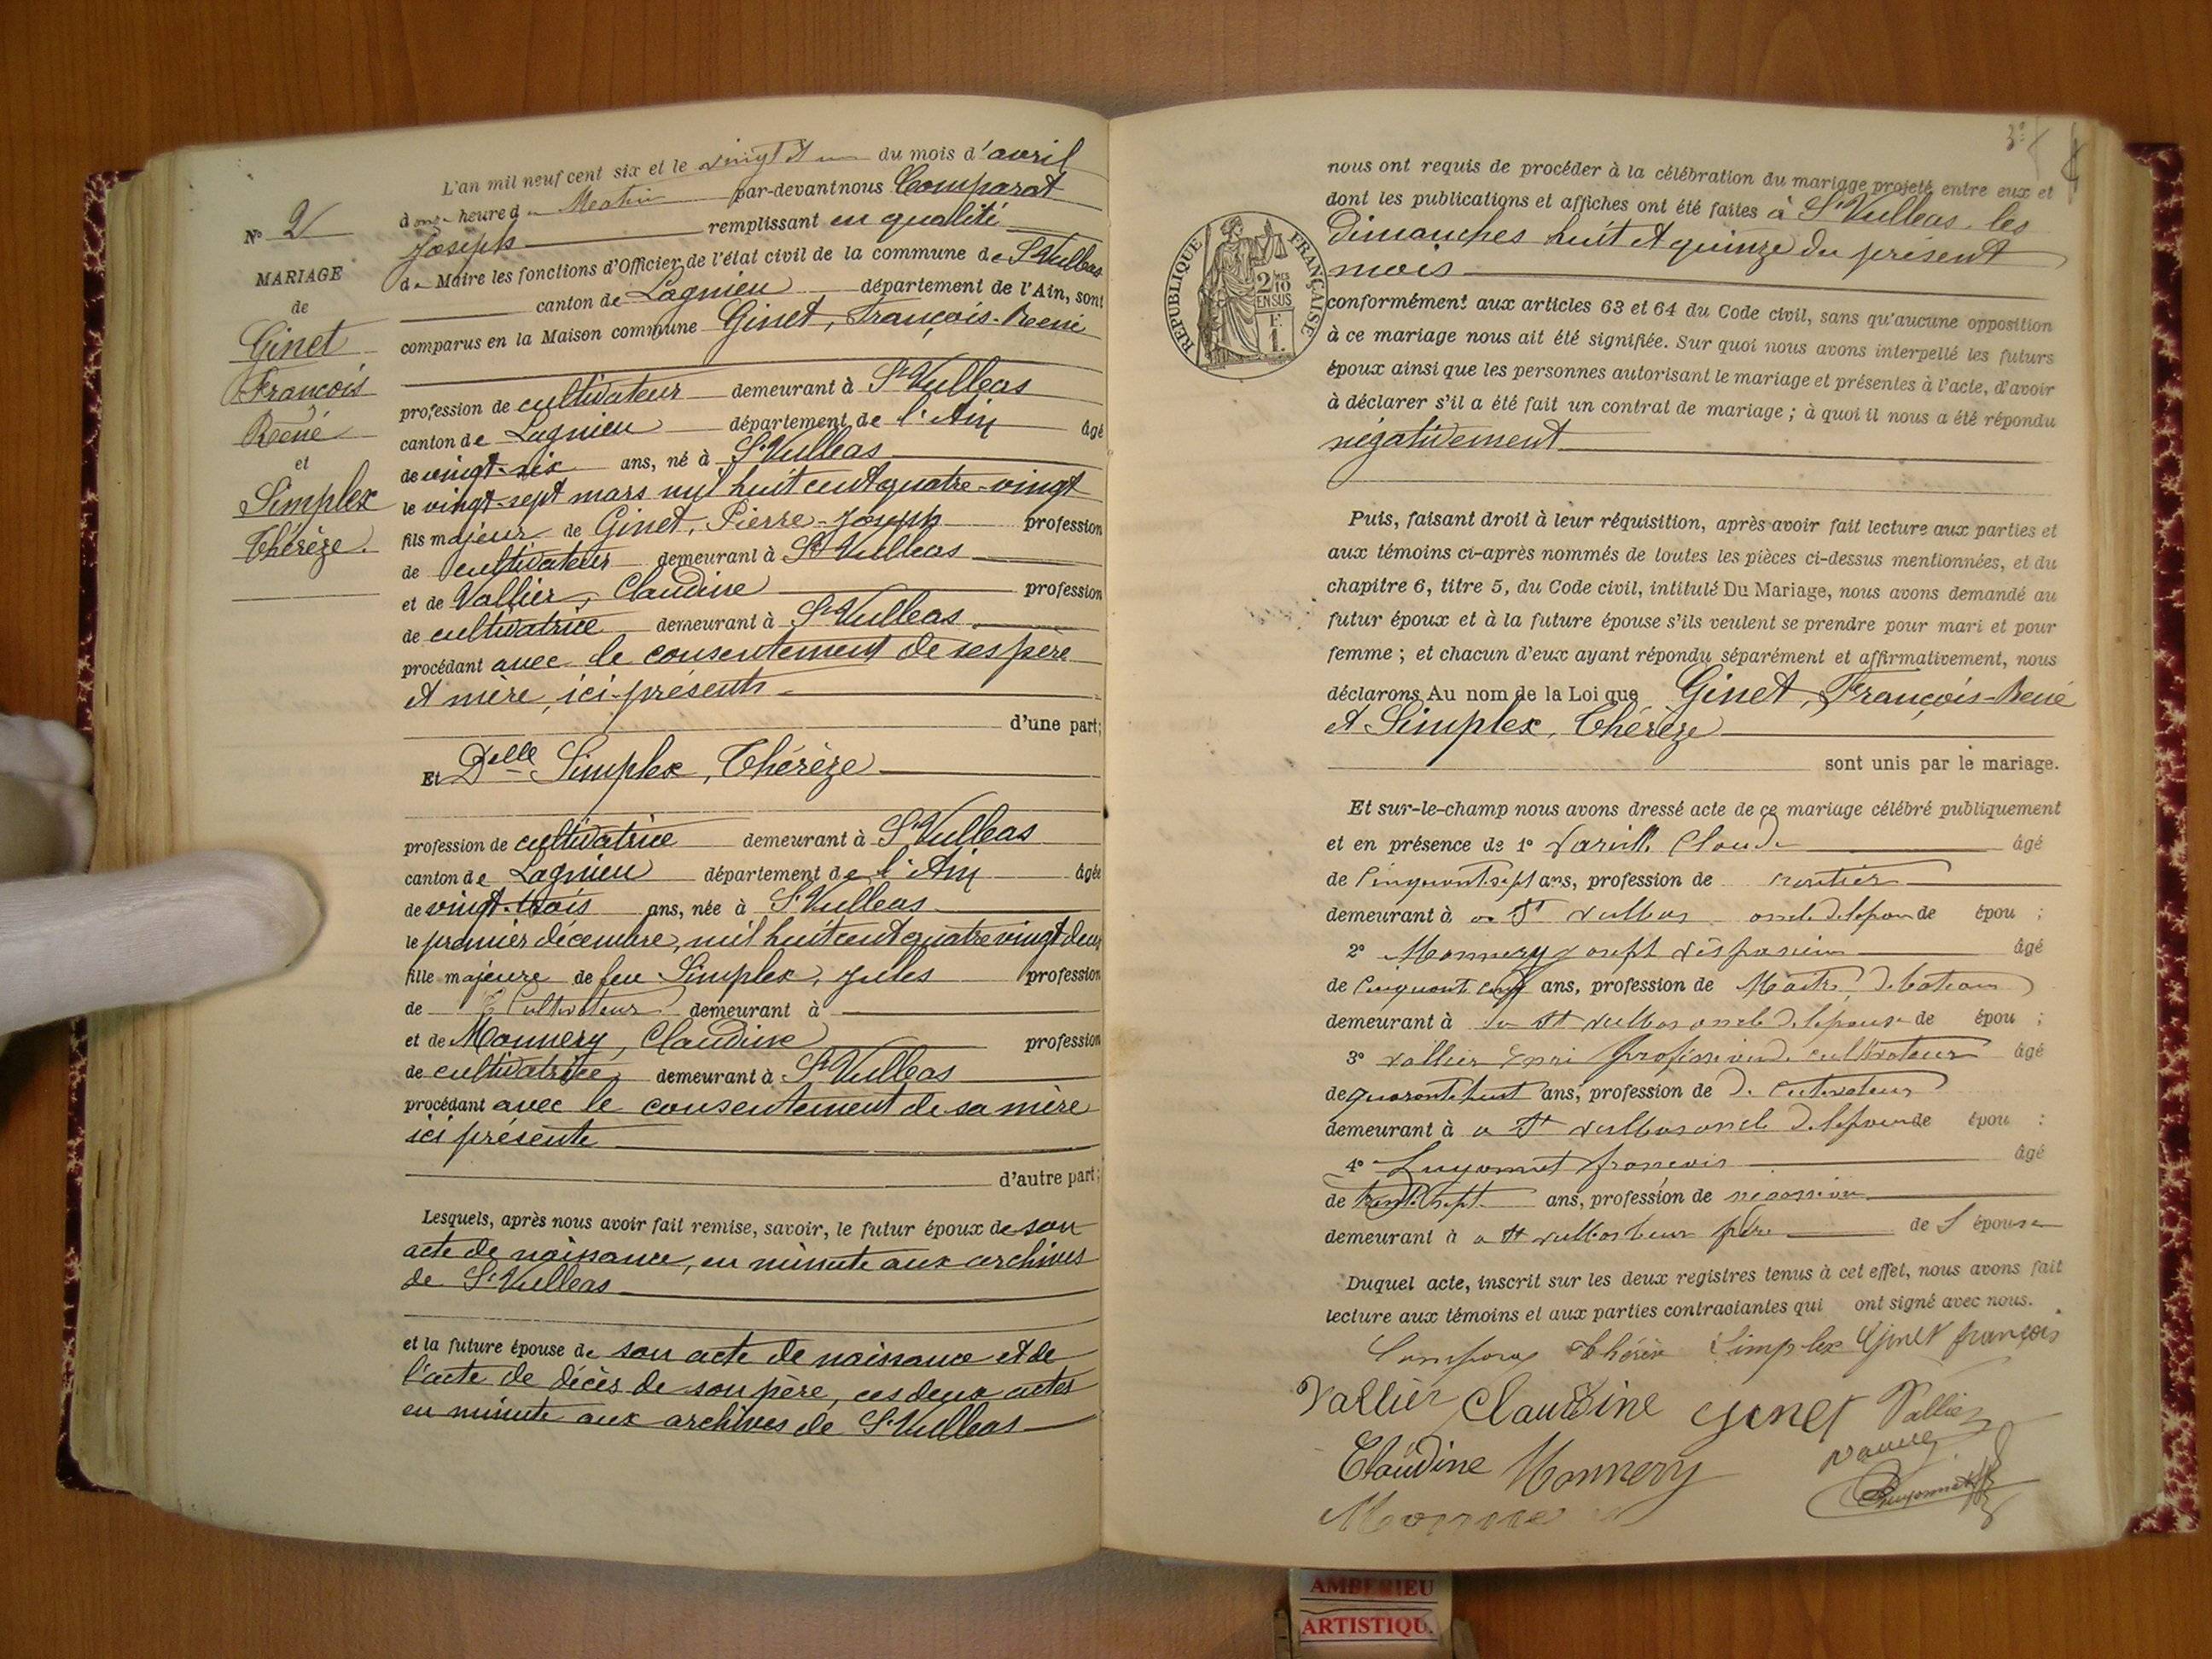 L'an mil neuf cent six et le vingt et un du mois d'avril
à onze heure du Matin par-devant nous Comparat
Joseph remplissant en qualité
de Maire les fonctions d'Officier de l'état civil de la commune de St Vulbas
canton de Lagnieu département de l'Ain, sont
comparus en la Maison commune Ginet, François-René
profession de cultivateur demeurant à St Vulbas
canton de Lagnieu département de l'Ain âgé
de vingt-six ans, né à St Vulbas
le vingt-sept mars mil huit cent quatre-vingt
fils majeur de Ginet, Pierre-Joseph profession
de cultivateur demeurant à St Vulbas
et de Vallier, Claudine profession
de cultivatrice demeurant à St Vulbas
procédant avec le consentement de ses père
et mère, ici présents
d'une part;
Et Delle Simplex, Thérèze
profession de cultivatrice demeurant à St Vulbas
canton de Lagnieu département de l'Ain âgée
de vingt-trois ans, née à St Vulbas
le premier décembre, mil huit cent quatre vingt deux
fille majeure de feu Simplex, Jules profession
de Cultivateur demeurant à
et de Monnery, Claudine profession
de cultivatrice demeurant à St Vulbas
procédant avec le consentement de sa mère
ici présente
d'autre part;
Lesquels, après nous avoir fait remise, savoir, le futur époux de son
acte de naissance, en minute aux archives
de St Vulbas
et la future épouse de son acte de naissance et de
l'acte de décès de son père, ces deux actes
en minute aux archives de St Vulbas
N° 2
MARIAGE
de
Ginet
François
René
et
Simplex
Thérèze.
3e
nous ont requis de procéder à la célébration du mariage projeté entre eux et
dont les publications et affiches ont été faites à St Vulbas, les
dimanches huit et quinze du présent
mois
conformément aux articles 63 et 64 du Code civil, sans qu'aucune opposition
à ce mariage nous ait été signifiée. Sur quoi nous avons interpellé les futurs
époux ainsi que les personnes autorisant le mariage et présentes à l'acte, d'avoir
à déclarer s'il a été fait un contrat de mariage; à quoi il nous a été répondu
négativement
Puis, faisant droit à leur réquisition, après avoir fait lecture aux parties et
aux témoins ci-après nommés de toutes les pièces ci-dessus mentionnées, et du
chapitre 6, titre 5, du Code civil, intitulé Du Mariage, nous avons demandé au
futur époux et à la future épouse s'ils veulent se prendre pour mari et pour
femme; et chacun d'eux ayant répondu séparément et affirmativement, nous
déclarons Au nom de la Loi que Ginet, François-René
et Simplex, Thérèze
sont unis par le mariage.
Et sur-le-champ nous avons dressé acte de ce mariage célébré publiquement
et en présence de 1° Claude âgé
de Cinquant sept ans, profession de rentier
demeurant à a St Vulbas oncle de de épou ;
2° Monnery Joseph âgé
de Cinquant cinq ans, profession de Maitre de bateau
demeurant à a St Vulbas oncle de lepouse de épou ;
3° Vallier profession de cultivateur âgé
de quarante huit ans, profession de de Cultivateur
demeurant à a St Vulbas oncle de de épou :
4° Guyonnet françois âgé
de trente sept ans, profession de
demeurant à a St Vulbas beau frère de L épouse
Duquel acte, inscrit sur les deux registres tenus à cet effet, nous avons fait
lecture aux témoins et aux parties contractantes qui ont signé avec nous.
Thérèse Simplex Ginet françois
Vallier Claudine Ginet Vallier
Claudine Monnery
Guyonnet
REPUBLIQUE FRANÇAISE
2/10 EN SUS
F
1.
AMBERIEU
ARTISTIQU.